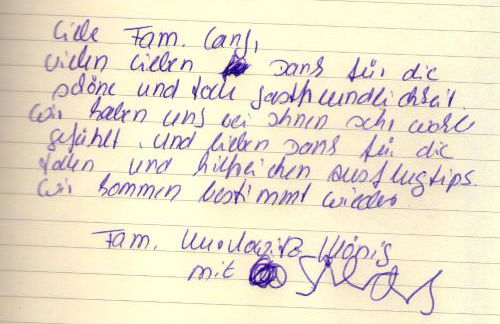 Liebe Fam. Lang,
vielen lieben Dank für die
schöne und tolle Gastfreundlichkeit.
Wir haben uns bei Ihnen sehr wohl
gefühlt und lieben Dank für die
tollen und hilfreichen Ausflugtips.
Wir kommen bestimmt wieder
Fam. König
mit